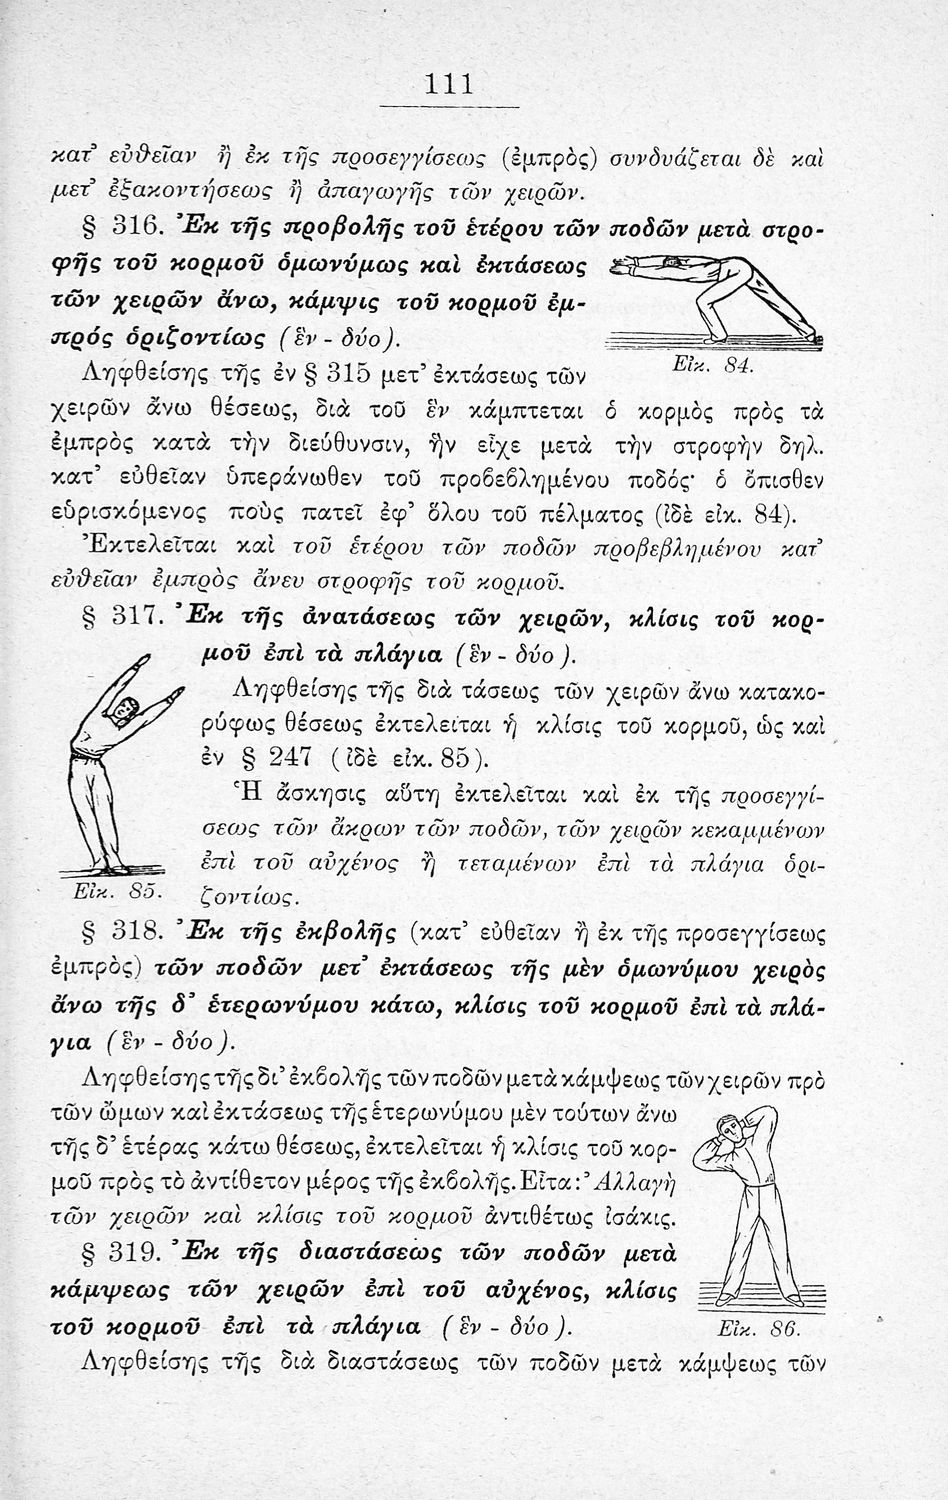 111
κατ’ εὐθεῖαν ἢ ἐκ τῆς προσεγγίσεως (ἐμπρὸς) συνδυάζεται δὲ καὶ
μετ’ ἐξακοντήσεως ἢ ἀπαγωγῆς τῶν χειρῶν.
§ 316. Ἐκ τῆς προβολῆς τοῦ ἑτέρου τῶν ποδῶν μετὰ στρο-
φῆς τοῦ κορμοῦ ὁμωνύμως καὶ ἐκτάσεως
τῶν χειρῶν ἄνω, κάμψις τοῦ κορμοῦ ἐμ-
πρός ὁριζοντίως (ἓν - δύο).
Εἰκ. 84.
Ληφθείσης τῆς ἐν § 315 μετ’ ἐκτάσεως τῶν
χειρῶν ἄνω θέσεως, διὰ τοῦ ἓν κάμπτεται ὁ κορμὸς πρὸς τὰ
ἐμπρὸς κατὰ τὴν διεύθυνσιν, ἣν εἶχε μετὰ τὴν στροφὴν δηλ.
κατ’ εὐθεῖαν ὑπεράνωθεν τοῦ προϐεϐλημένου ποδός· ὁ ὄπισθεν
εὑρισκόμενος ποὺς πατεῖ ἐφ’ ὅλου τοῦ πέλματος (ἰδὲ εἰκ. 84).
Ἐκτελεῖται καὶ τοῦ ἑτέρου τῶν ποδῶν προβεβλημένου κατ’
εὐθεῖαν ἐμπρὸς ἄνευ στροφῆς τοῦ κορμοῦ.
§ 317. Ἐκ τῆς ἀνατάσεως τῶν χειρῶν, κλίσις τοῦ κορ-
μοῦ ἐπὶ τὰ πλάγια (ἓν - δύο).
Ληφθείσης τῆς διὰ τάσεως τῶν χειρῶν ἄνω κατακο-
ρύφως θέσεως ἐκτελεῖται ἡ κλίσις τοῦ κορμοῦ, ὡς καὶ
ἐν § 247 (ἰδὲ εἰκ. 85).
Ἡ ἄσκησις αὕτη ἐκτελεῖται καὶ ἐκ τῆς προσεγγί-
σεως τῶν ἄκρων τῶν ποδῶν, τῶν χειρῶν κεκαμμένων
ἐπὶ τοῦ αὐχένος ἢ τεταμένων ἐπὶ τὰ πλάγια ὁρι-
ζοντίως.
Εἰκ. 85.
§ 318. Ἐκ τῆς ἐκβολῆς (κατ’ εὐθεῖαν ἢ ἐκ τῆς προσεγγίσεως
ἐμπρὸς) τῶν ποδῶν μετ’ ἐκτάσεως τῆς μὲν ὁμωνύμου χειρὸς
ἄνω τῆς δ’ ἑτερωνύμου κάτω, κλίσις τοῦ κορμοῦ ἐπὶ τὰ πλά-
για (ἓν - δύο).
Ληφθείσης τῆς δι’ ἐκϐολῆς τῶν ποδῶν μετὰ κάμψεως τῶν χειρῶν πρὸ
τῶν ὤμων καὶ ἐκτάσεως τῆς ἑτερωνύμου μὲν τούτων ἄνω
τῆς δ’ ἑτέρας κάτω θέσεως, ἐκτελεῖται ἡ κλίσις τοῦ κορ-
μοῦ πρὸς τὸ ἀντίθετον μέρος τῆς ἐκϐολῆς. Εἶτα: Ἀλλαγὴ
τῶν χειρῶν καὶ κλίσις τοῦ κορμοῦ ἀντιθέτως ἰσάκις.
§ 319. Ἐκ τῆς διαστάσεως τῶν ποδῶν μετὰ
κάμψεως τῶν χειρῶν ἐπὶ τοῦ αὐχένος, κλίσις
τοῦ κορμοῦ ἐπὶ τὰ πλάγια (ἓν - δύο).
Εἰκ. 86.
Ληφθείσης τῆς διὰ διαστάσεως τῶν ποδῶν μετὰ κάμψεως τῶν